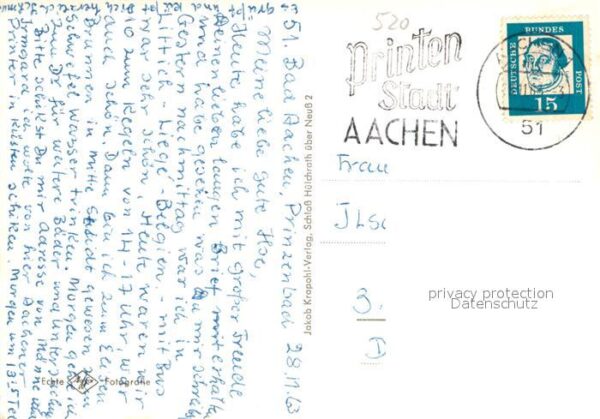 51. Bad Aachen, Prinzenbad 28.11.63
Meine liebe gute Ilse,
Heute habe ich mit großer Freude
Deinen lieben langen Brief erhalten
und habe gesehen was Du mir schreibst
Gestern nachmittag war ich in
Lüttich - Liege - Belgien - mit Bus
war sehr schön. Heute waren wir
zum Kegeln von 14-17 Uhr, wir
auch schön. Dann bin ich zum Elisen
Brunnen in mitte Stadt gewesen zum
Schwefelwasser trinken. Morgen gehe ich
zum Dr. für weitere Bäder und
Bitte schicke Du mir Adresse von
Irmgard ich wollte von hier Aachener
Printen in Kisten schicken. Morgen um
520
Printen
Stadt
AACHEN
51
DEUTSCHE BUNDESPOST
15
Frau
Ilse
9.
D
Jakob Krapohl-Verlag, Schloß Hülchrath über Neuß 2
Echte Fotografie
privacy protection
Datenschutz